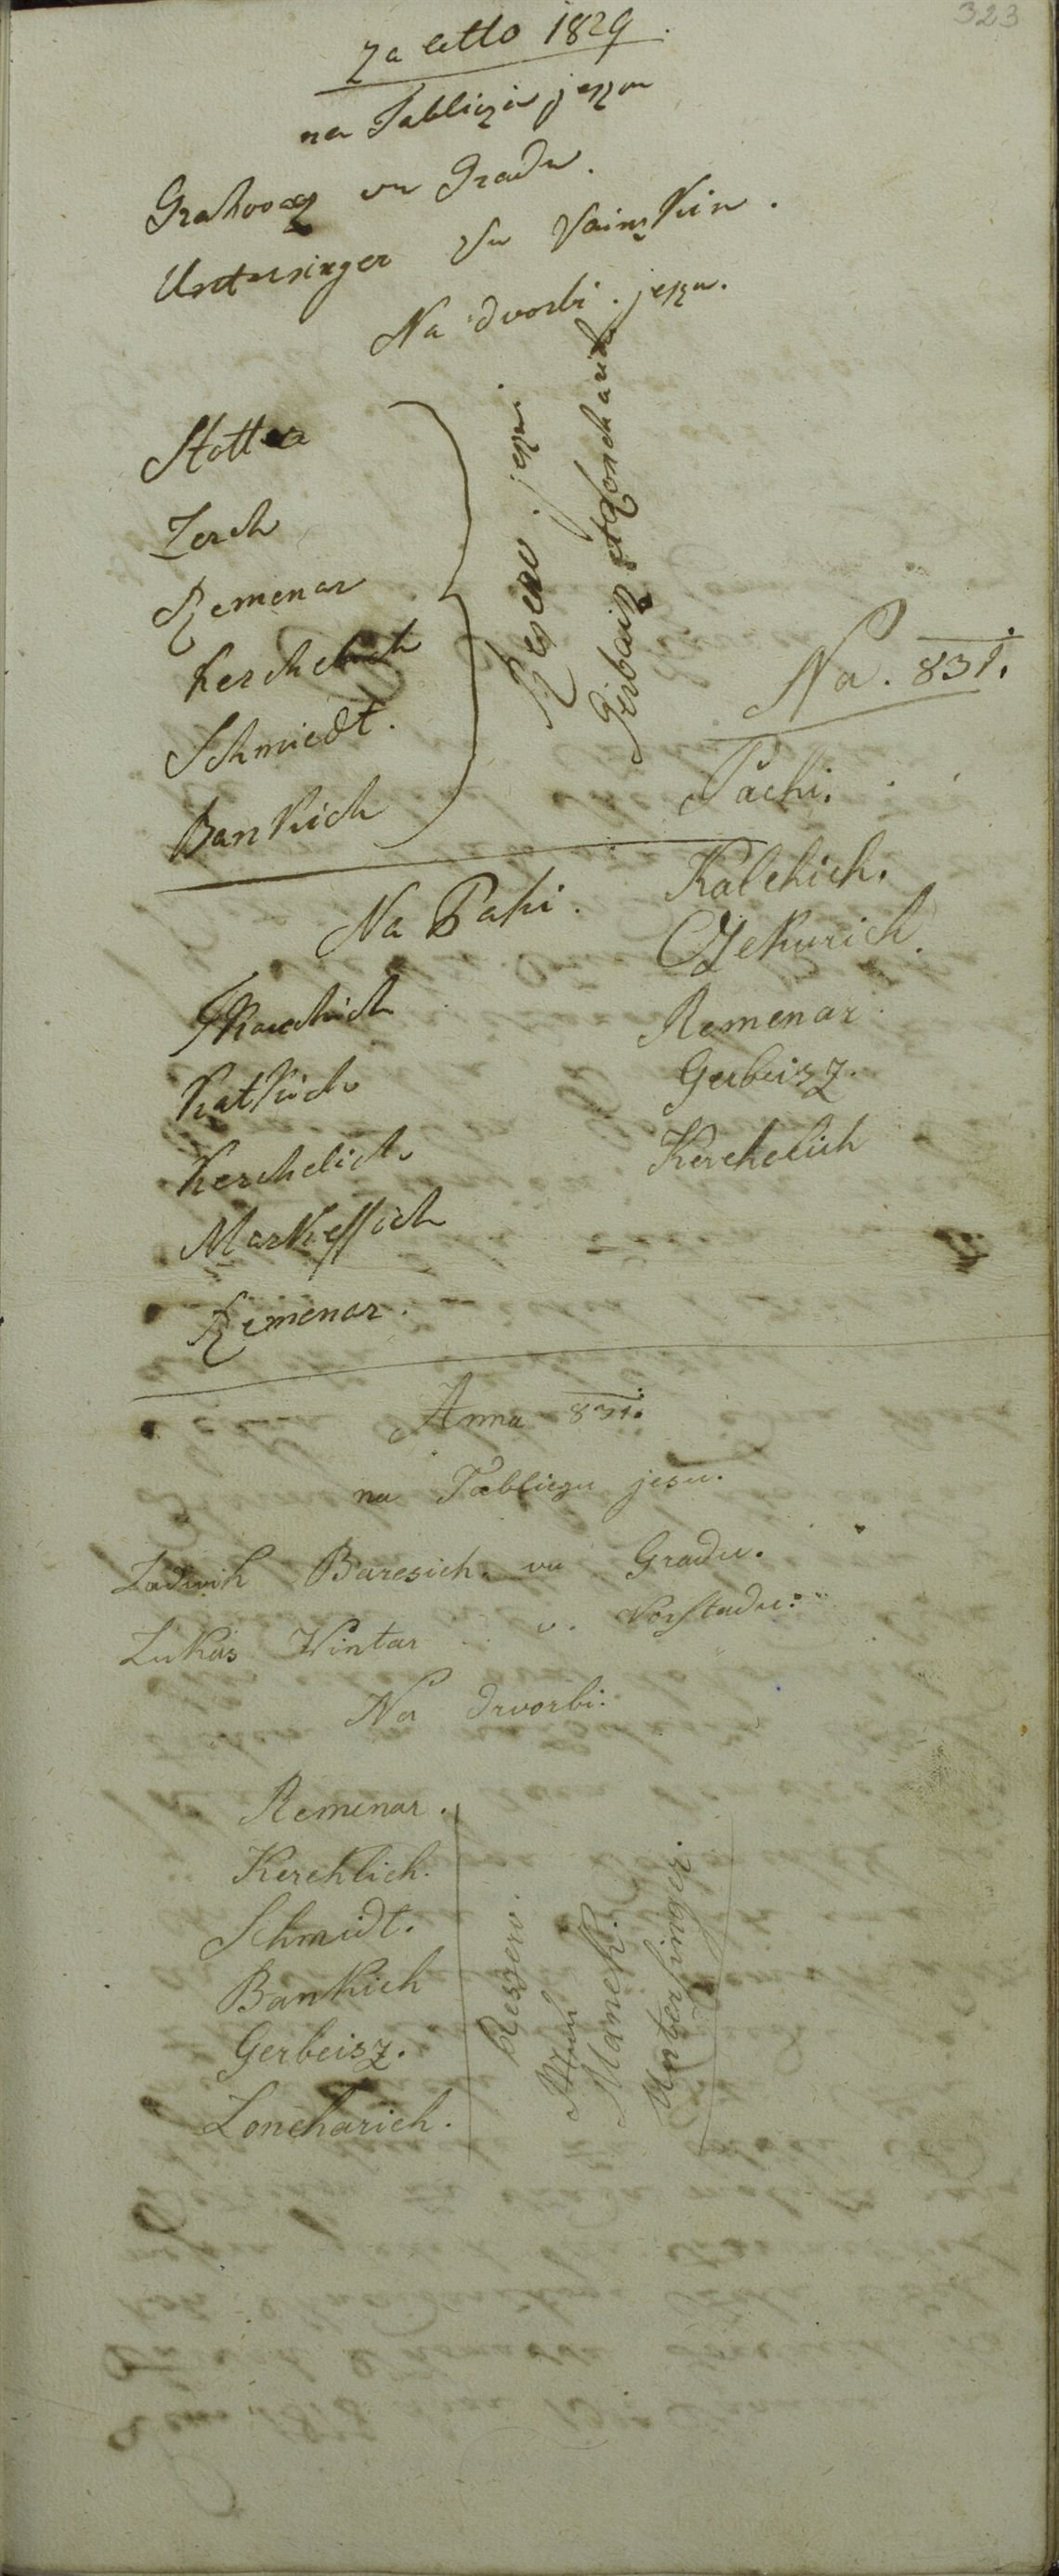 323
Za letto 1829.
na Tablicza jeszu
Grahovacz vu Gradu.
Untersinger vu
Na dvorbi jeszu.
Stotter
Zerch
Remenar
Kerchelich
Schmiedt.
Bankich
Reserv. jeszu.
Gerbaisz et Loncharich
Na Paki.
Katkich
Kerchelich
Markessich
Remenar.
Na. 831.
Pachi.
Kalchich.
Czekurich.
Remenar
Gerbeisz.
Kerchelich
Anna 831.
na Tabliczu jesu.
Ladwik Baresich. vu Gradu.
Lukas Vintar v. Vorstadu.
Na Drvorbi.
Remenar.
Kerchlich.
Schmidt.
Bankich
Gerbeisz.
Loncharich.
Reserv.
Manch.
Untersinger